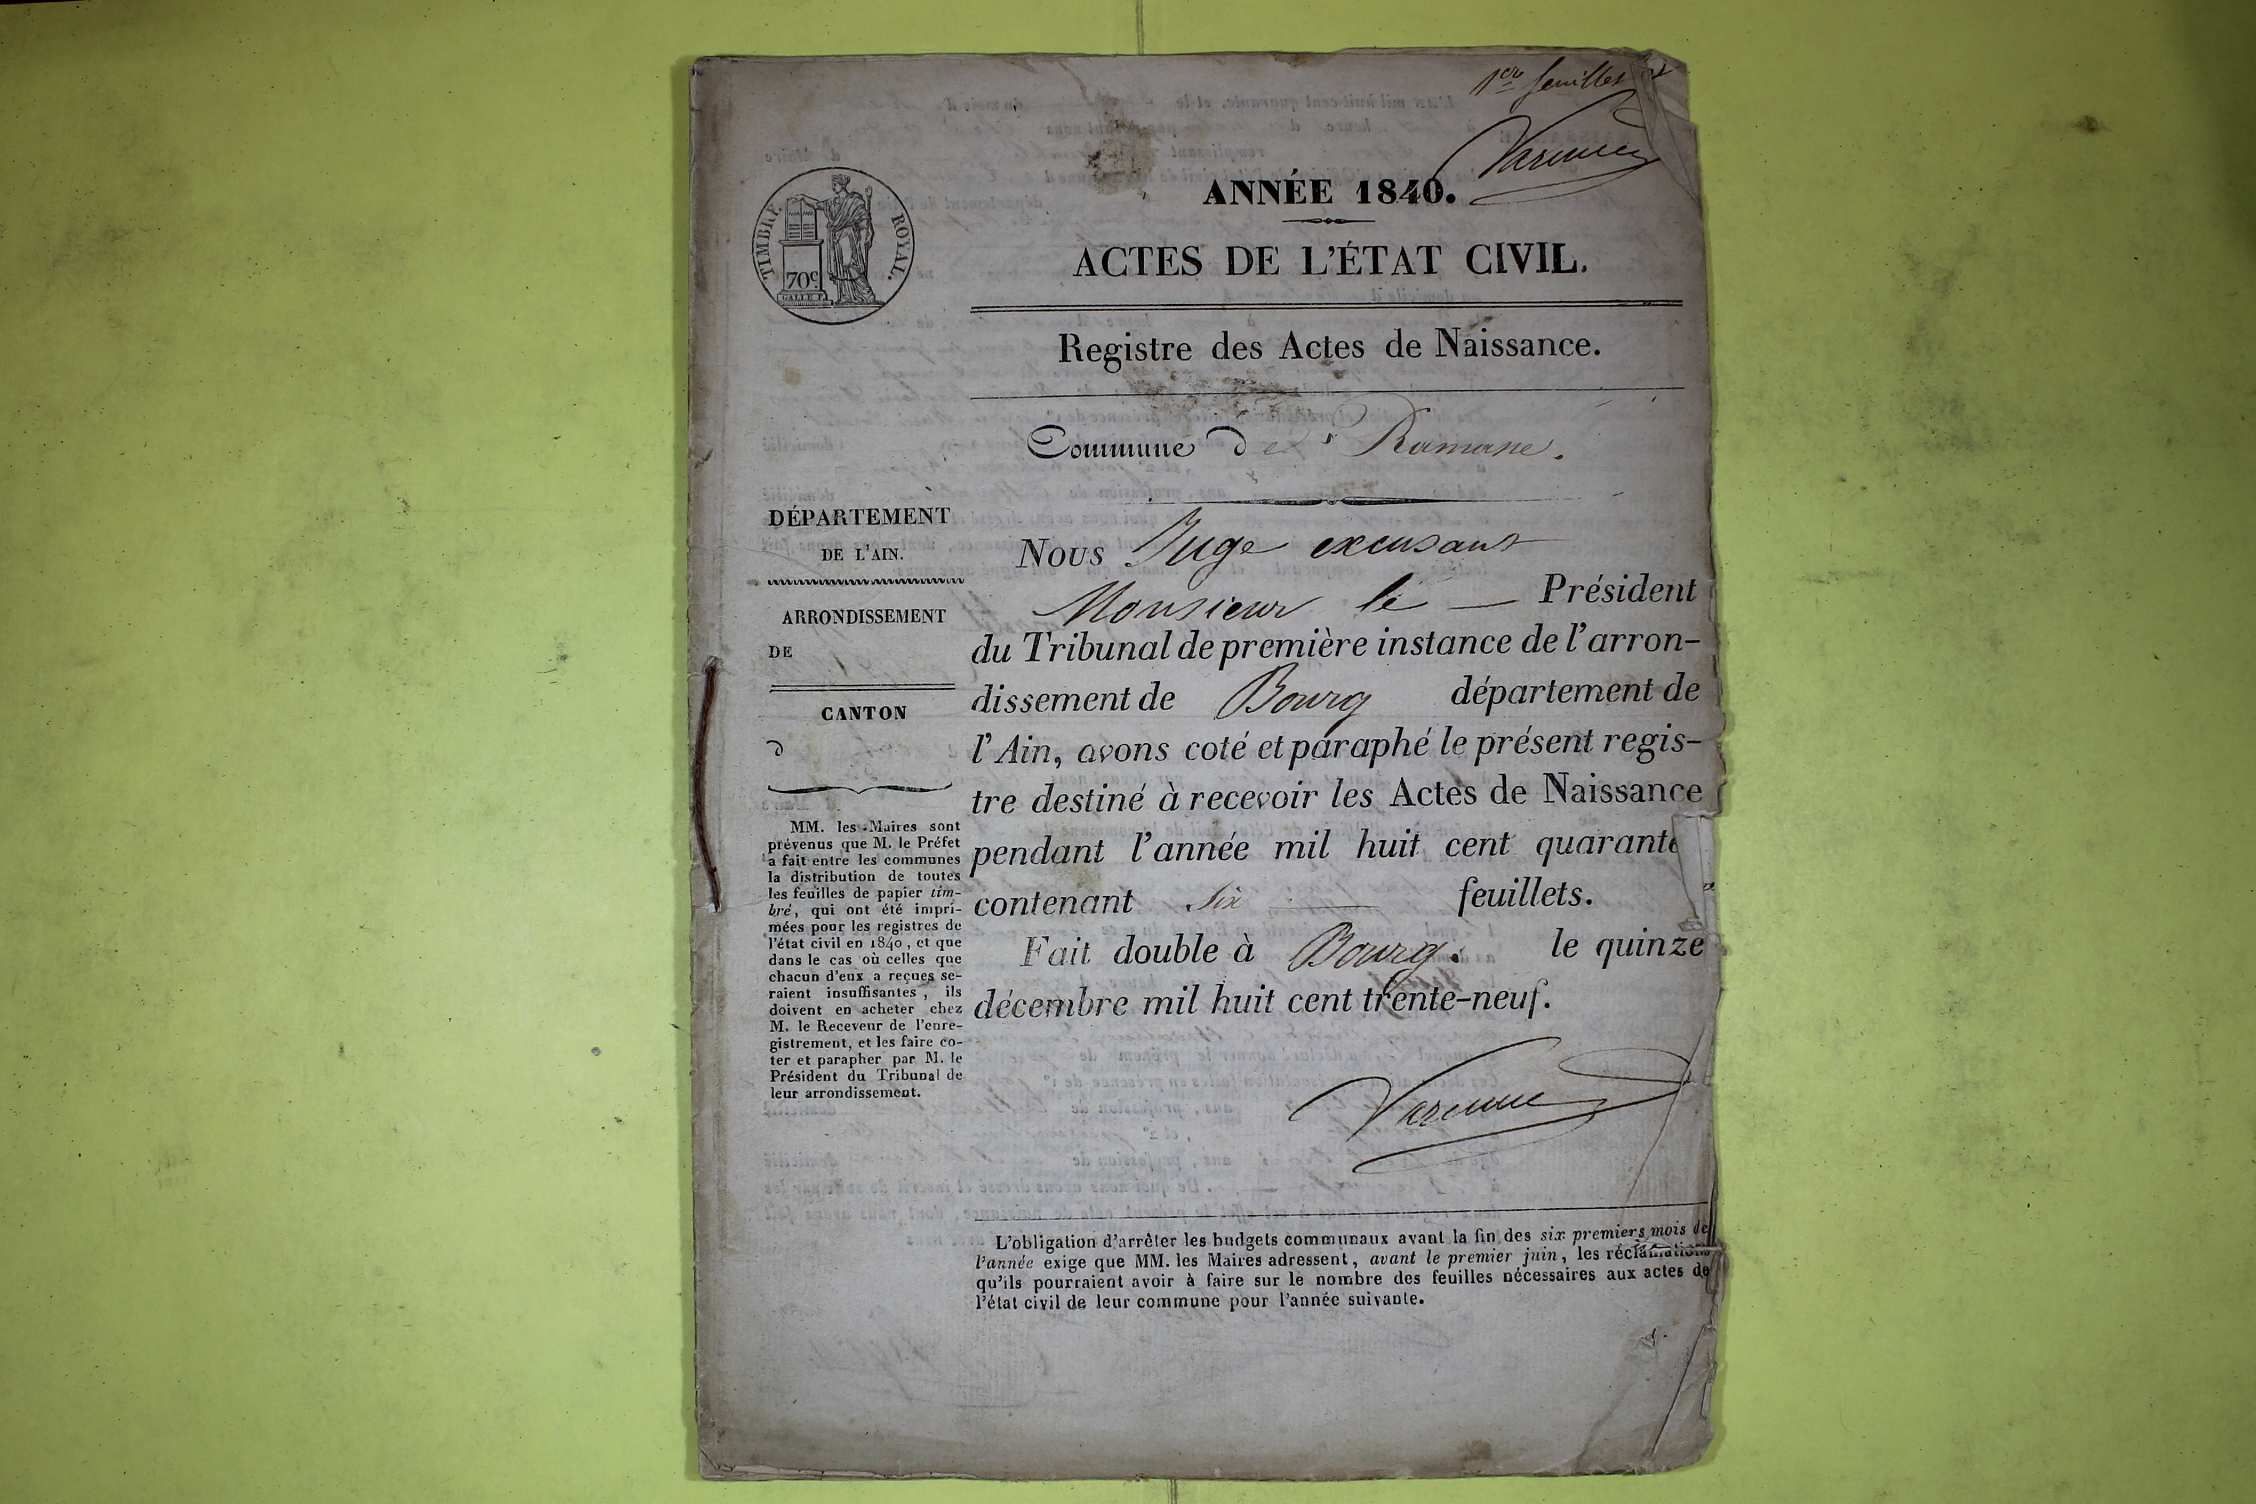 1er feuillet
Varenne
TIMBRE ROYAL.
70c.
GALLE F.
ANNÉE 1840.
ACTES DE L'ÉTAT CIVIL.
Registre des Actes de Naissance.
Commune de St Romane.
DÉPARTEMENT
DE L'AIN.
ARRONDISSEMENT
DE
CANTON
d
MM. les Maires sont
prévenus que M. le Préfet
a fait entre les communes
la distribution de toutes
les feuilles de papier tim-
bré, qui ont été impri-
mées pour les registres de
l'état civil en 1840, et que
dans le cas où celles que
chacun d'eux a reçues se-
raient insuffisantes, ils
doivent en acheter chez
M. le Receveur de l'enre-
gistrement, et les faire co-
ter et parapher par M. le
Président du Tribunal de
leur arrondissement.
Nous Juge excusant
Monsieur le — Président
du Tribunal de première instance de l'arron-
dissement de Bourg département de
l'Ain, avons coté et paraphé le présent regis-
tre destiné à recevoir les Actes de Naissance
pendant l'année mil huit cent quarante
contenant six feuillets.
Fait double à Bourg. le quinze
décembre mil huit cent trente-neuf.
Varenne
L'obligation d'arrêter les budgets communaux avant la fin des six premiers mois de
l'année exige que MM. les Maires adressent, avant le premier juin, les réclamations
qu'ils pourraient avoir à faire sur le nombre des feuilles nécessaires aux actes de
l'état civil de leur commune pour l'année suivante.